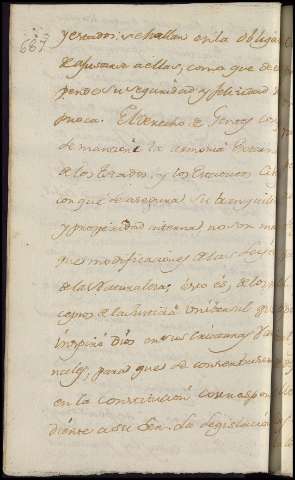 687
y estados: se hallan en la obliga
de ajustarse a ellas, como que de e
pende su seguridad y felicidad
. El derecho de Gentes con
de mantiene la armonia
de los Estados, y los
con que de asegura su tranquili
y prosperidad interna no son ma
que modificaciones de las Leyes
de la Naturaleza, esto es, de los pre
ceptos de la Justicia Universal que
inspiró Dios en sus criaturas ra
nales, para que se conserbasen
en la constitucion correspon
diente a su Ser. La legislacion